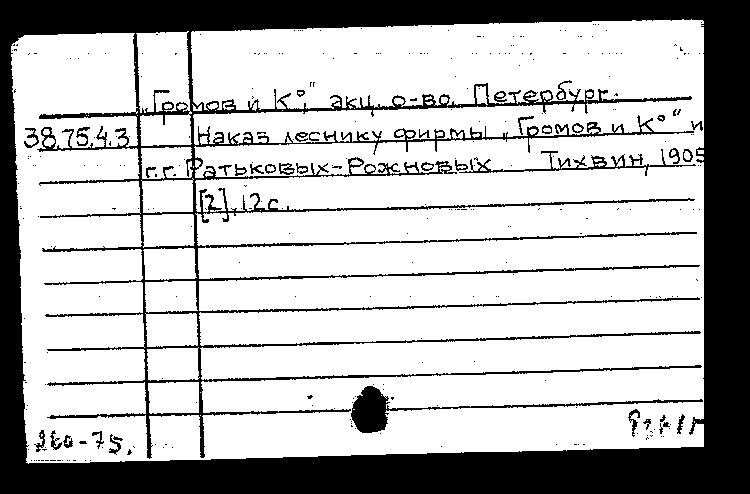 „Громов и К°", акц. о-во. Петербург.
38.75.4.3 Наказ леснику фирмы „Громов и К°" и
г.г. Ратьковых-Рожновых Тихвин, 1905
[2], 12 с.
260-75.